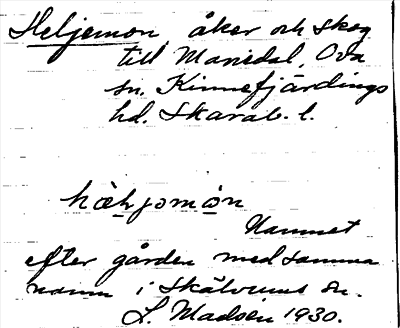 Heljemon åker och skog
till Mariedal, Ova
sn. Kinnefjärdings
hd. Skarab. l.
hæ̀ljomòn
Namnet
efter gården med samma
namn i Skälvums sn.
L. Madsén 1930.